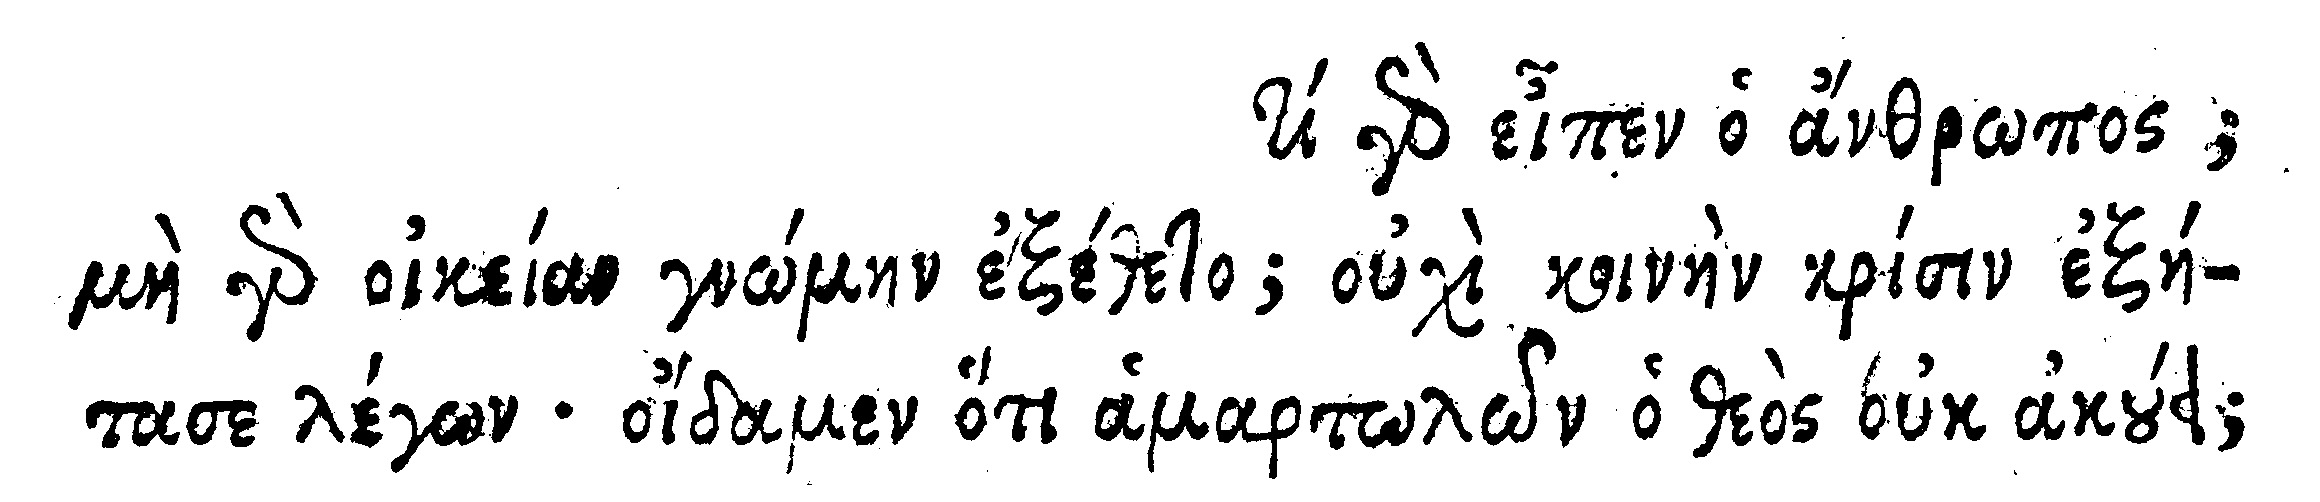 τί γὰρ εἶπεν ὁ ἄνθρωπος ;
μὴ γὰρ οἰκείαν γνώμην ἐξέθετο ; οὐχὶ κοινὴν κρίσιν ἐξή-
τασε λέγων · οἴδαμεν ὅτι ἁμαρτωλῶν ὁ θεὸς οὐκ ἀκούει ;